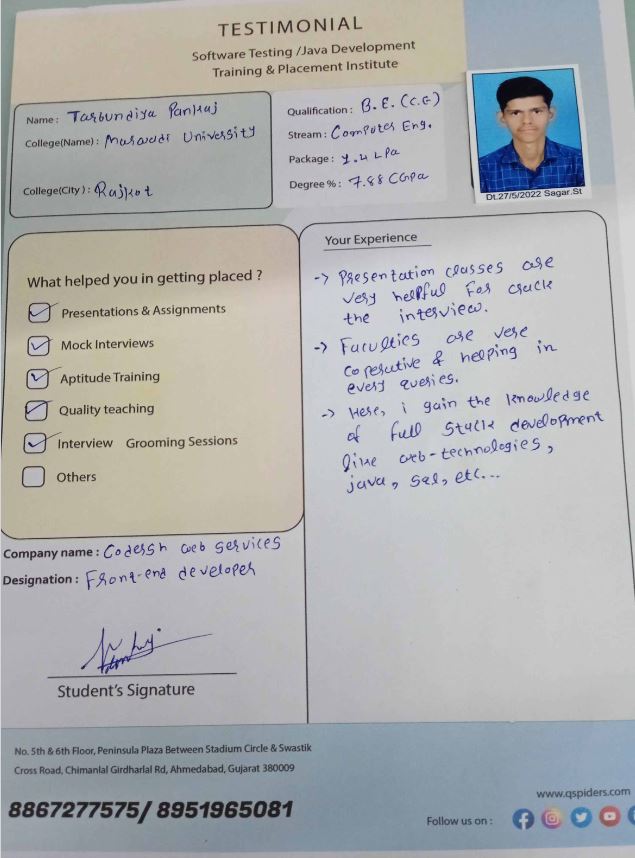 TESTIMONIAL
Software Testing /Java Development
Training & Placement Institute
Name : Tarbundiya Pankaj
College(Name) : Marwadi University
College(City) : Rajkot
Qualification : B.E. (C.E)
Stream : Computer Eng.
Package : LPa
Degree % : 7.88 CGPa
Dt.27/5/2022 Sagar.St
What helped you in getting placed ?
Presentations & Assignments
Mock Interviews
Aptitude Training
Quality teaching
Interview Grooming Sessions
Others
Company name : web services
Designation : Front-end developer
Student's Signature
Your Experience
-> Presentation classes are
very helpful for crack
the interview.
-> Faculties are vere
coperative & helping in
every queries.
-> Here, i gain the knowledge
of full stack development
like web-technologies,
java, sql, etc...
No. 5th & 6th Floor, Peninsula Plaza Between Stadium Circle & Swastik
Cross Road, Chimanlal Girdharlal Rd, Ahmedabad, Gujarat 380009
8867277575/ 8951965081
www.qspiders.com
Follow us on :